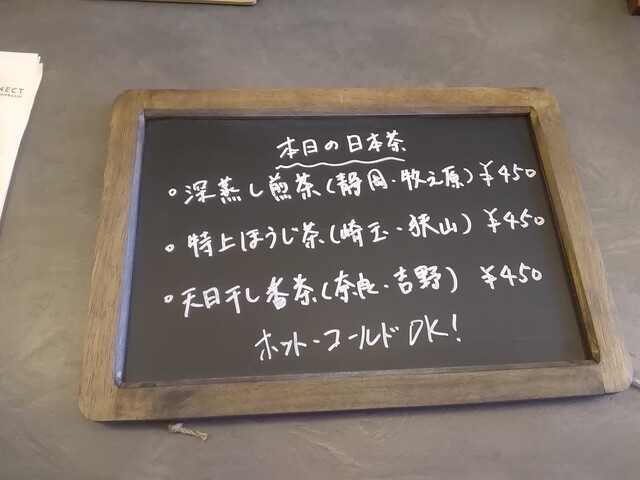 NECT
本日の日本茶
○ 深蒸し煎茶(静岡・牧之原) ¥450
○ 特上ほうじ茶(崎玉・狭山) ¥450
○ 天日干し番茶(奈良・吉野) ¥450
ホット・コールドOK!